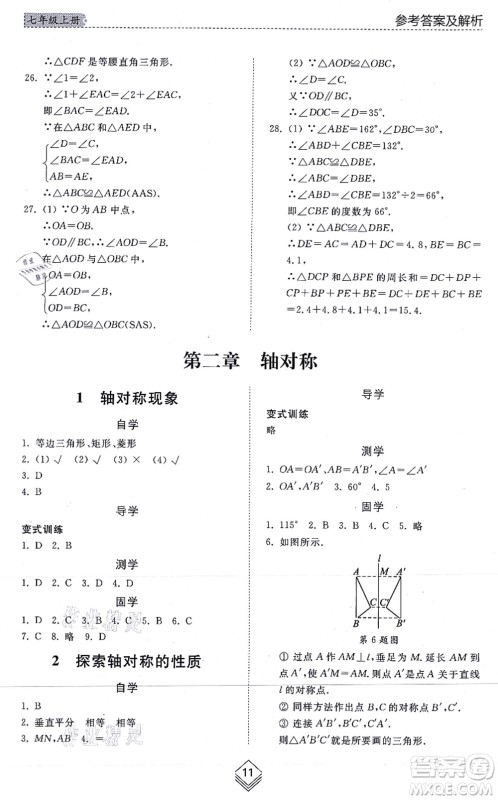 七年级上册
参考答案及解析
∴△CDF 是等腰直角三角形.
26. ∵∠1=∠2,
∴∠1+∠EAC=∠2+∠EAC,
即∠BAC=∠EAD.
∵在△ABC 和△AED 中,
∠D=∠C,
∠BAC=∠EAD,
AB=AE,
∴△ABC≌△AED(AAS).
27. (1) ∵O 为 AB 中点,
∴OA=OB.
∵OD∥BC,∴∠AOD=∠B.
在△AOD 与△OBC 中,
OA=OB,
∠AOD=∠B,
OD=BC,
∴△AOD≌△OBC(SAS).
(2) ∵△AOD≌△OBC,
∴∠ADO=∠OCB=35°.
又∵OD∥BC,
∴∠DOC=∠OCB=35°.
28. (1) ∵∠ABE=162°,∠DBC=30°,
∴∠ABD+∠CBE=132°.
∵△ABC≌△DBE,
∴∠ABC=∠DBE.
∴∠ABD=∠CBE=132°÷2=66°,
即∠CBE 的度数为 66°.
(2) ∵△ABC≌△DBE,
∴DE=AD+DC=4.8,BE=BC=4.1,
∴△DCP 和△BPE 的周长和=DC+DP+CP+BP+PE+BE=DC+DE+BC+BE=2.4+4.8+4.1+4.1=15.4.
第二章 轴对称
1 轴对称现象
自学
1. 等边三角形、矩形、菱形
2. (1)√ (2)√ (3)× (4)√
3. D
4. B
导学
变式训练
1. D 2. B
测学
1. D 2. D
固学
1. D 2. D 3. D 4. B 5. B 6. A
7. C 8. 略 9. 略
2 探索轴对称的性质
自学
1. B
2. 垂直平分 相等 相等
3. MN,AB 4. =
导学
变式训练
略
测学
1. OA=OA′,AB=A′B′,∠A=∠A′
2. OA′,A′B′ 3. 60° 4. 5
固学
1. 115° 2. B 3. B 4. B 5. B
6. 如图所示.
l
A
A′
C
C′
B
B′
第 6 题图
① 过点 A 作 AM⊥l,垂足为 M,延长 AM 至 A′,使 A′M=AM,则点 A′就是点 A 关于直线 l 的对称点;
② 同样方法作出点 B 的对称点 B′,点 C 的对称点 C′;
③ 连接 A′B′,B′C′,A′C′.
则△A′B′C′就是所要画的三角形.
11
作业精灵
答案圈